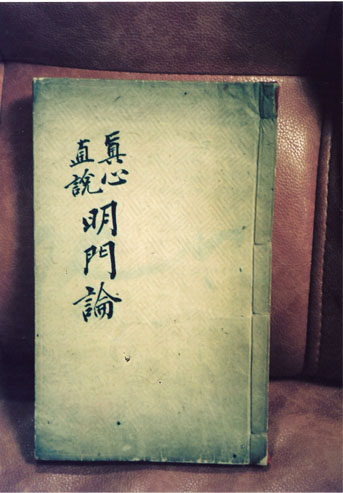 眞心
直說
明門論